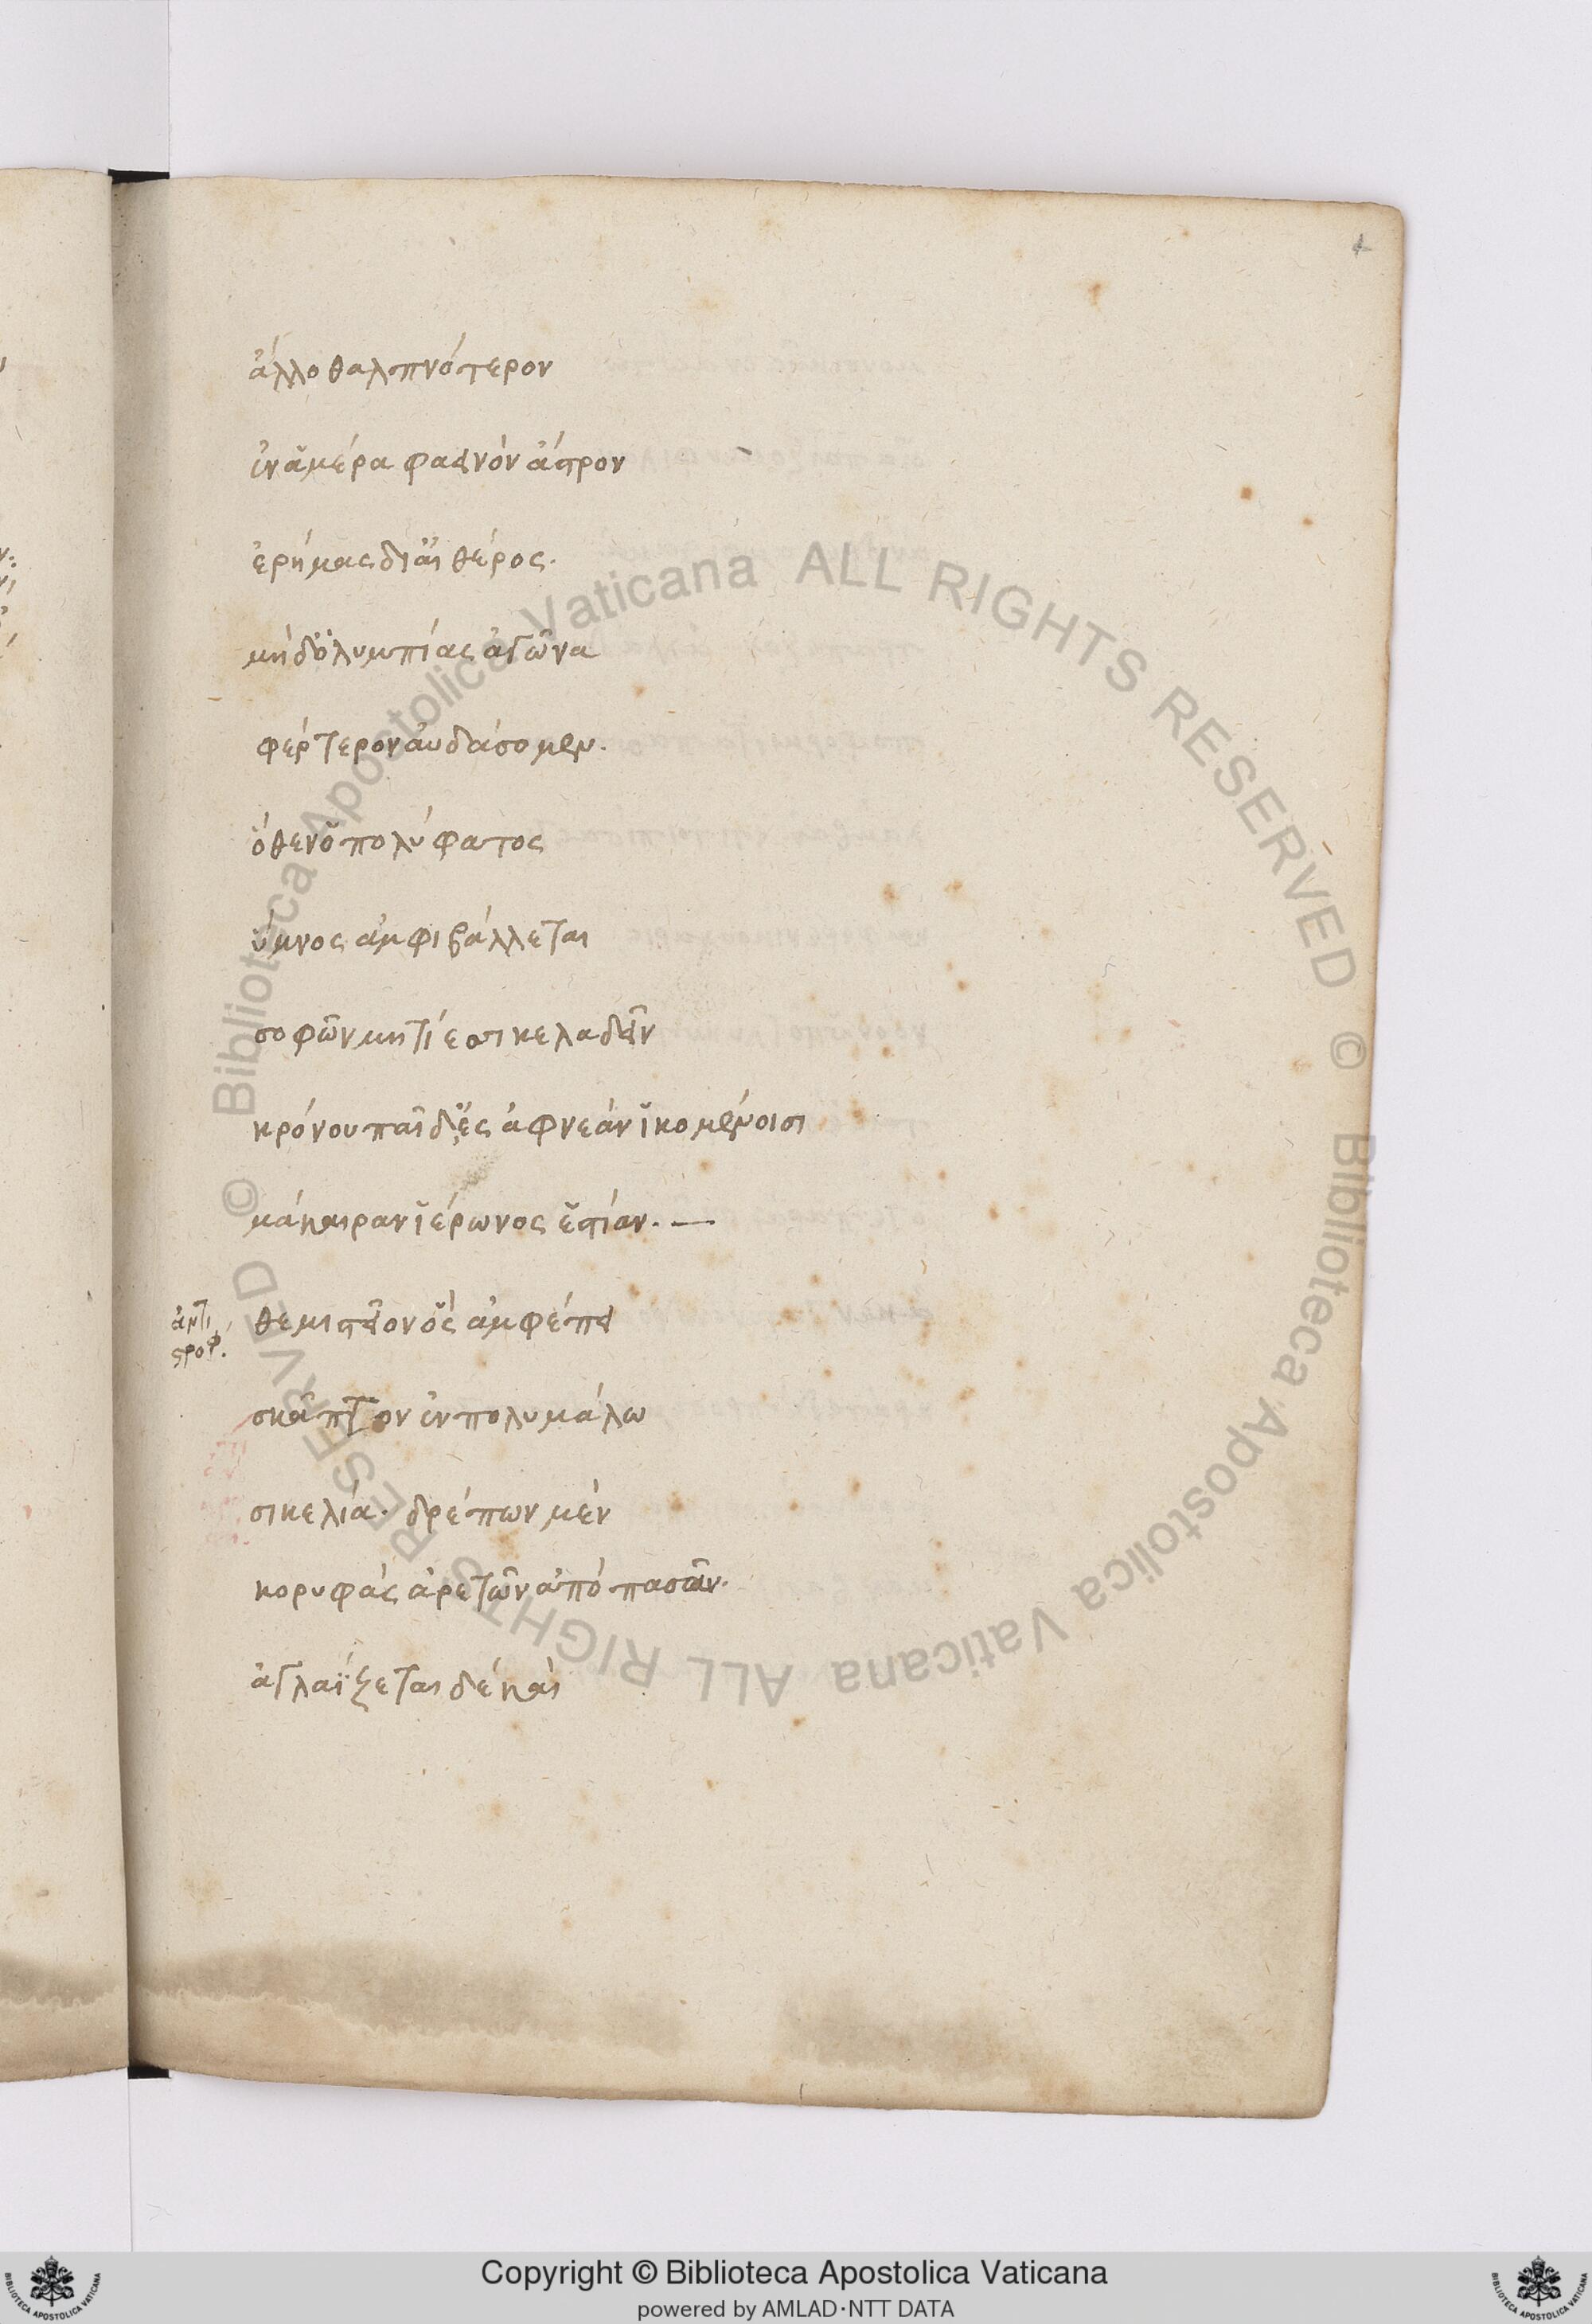 4
ἄλλο θαλπνότερον
ἐν ἁμέρα φαεινὸν ἄστρον
ἐρήμας δι' αἰθέρος.
μηδ' ὀλυμπίας ἀγῶνα
φέρτερον αὐδάσομεν.
ὅθεν ὁ πολύφατος
ὕμνος ἀμφιβάλλεται
σοφῶν μητίεσι κελαδεῖν
κρόνου παῖδ' ἐς ἀφνεὰν ἱκομένοισι
μάκαιραν ἱέρωνος ἑστίαν. —
ἀντι
στροφ.
θεμιστεῖον ὃς ἀμφέπει
σκᾶπτον ἐν πολυμάλω
σικελία· δρέπων μὲν
κορυφὰς ἀρετῶν ἀπὸ πασᾶν.
ἀγλαΐζεται δὲ καὶ
© Biblioteca Apostolica Vaticana ALL RIGHTS RESERVED © Biblioteca Apostolica Vaticana ALL RIGHTS RESERVED
Copyright © Biblioteca Apostolica Vaticana
powered by AMLAD·NTT DATA
BIBLIOTECA APOSTOLICA VATICANA
BIBLIOTECA APOSTOLICA VATICANA